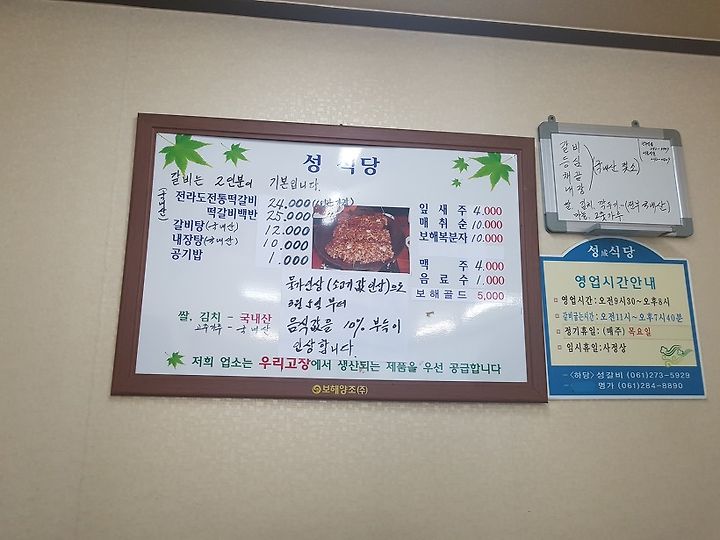 성 식당
갈비는 2인분이 기본입니다.
(국내산)
전라도전통떡갈비 24.000
떡갈비백반 25.000
갈비탕(국내산) 12.000
내장탕(국내산) 10.000
공기밥 1.000
잎새주 4.000
매취순 10.000
보해복분자 10.000
맥주 4.000
음료수 1.000
보해골드 5,000
물가인상(소고기값인상)으로
3월 5일 부터
음식값을 10% 부득이
인상합니다.
쌀, 김치 - 국내산
고추가루 - 국내산
저희 업소는 우리고장에서 생산되는 제품을 우선 공급합니다
보해양조(주)
갈비
등심
채끝
내장
국내산 젖소
쌀, 김치, 깍두기-(전부 국내산)
마늘, 고추가루
성成식당
영업시간안내
영업시간:오전9시30~오후8시
갈비굽는시간:오전11시~오후7시40분
정기휴일:(매주) 목요일
임시휴일:사정상
<하당>성갈비 (061)273-5929
명가 (061)284-8890